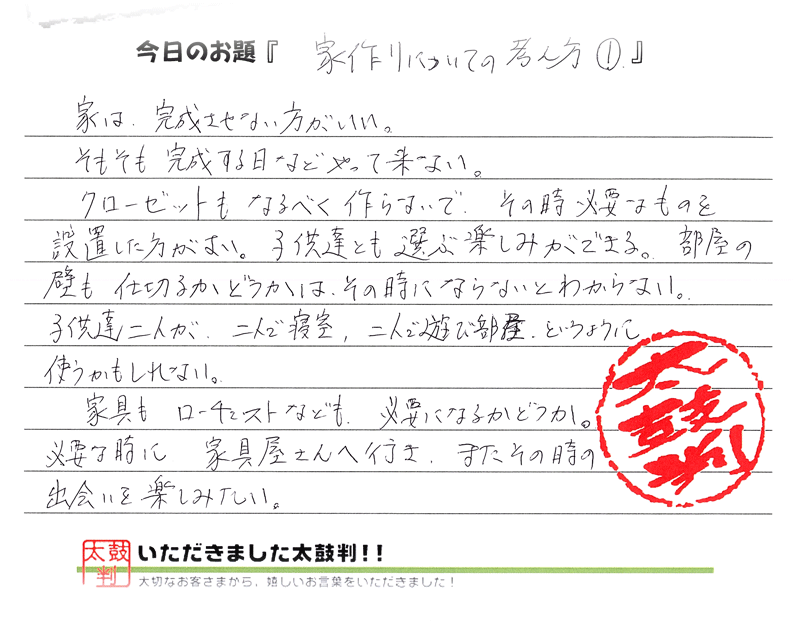 今日のお題『 家作りについての考え方①. 』
家は、完成させない方がいい。
そもそも 完成する日などやって来ない。
クローゼットも なるべく 作らないで、その時 必要なものを
設置した方がよい。子供達とも 選ぶ 楽しみができる。部屋の
壁も 仕切るかどうかは、その時に ならないと わからない。
子供達二人が、二人で寝室、二人で遊び部屋、というように
使うかもしれない。
家具も ローチェストなども、必要になるかどうか。
必要な時に 家具屋さんへ行き、またその時の
出会いを 楽しみたい。
太鼓判
太鼓判
いただきました太鼓判！！
大切なお客さまから、嬉しいお言葉をいただきました！